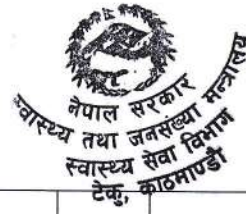 नेपाल सरकार
स्वास्थ्य तथा जनसंख्या मन्त्रालय
स्वास्थ्य सेवा विभाग
टेकु, काठमाण्डौ